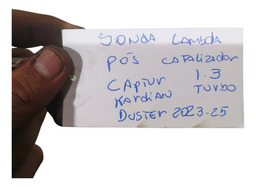 SONDA LAMBDA
PÓS CATALIZADOR
CAPTUR 1.3
KARDIAN TURBO
DUSTER 2023-25